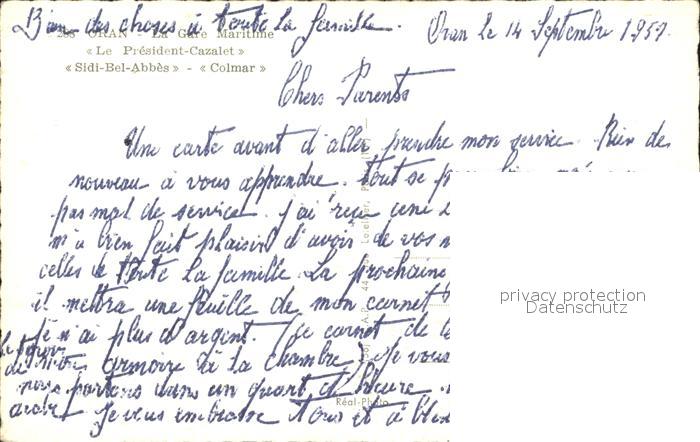 Bien des choses à toute la famille. Oran le 14 Septembre 1959.
286 ORAN - La Gare Maritime
« Le Président-Cazalet »
« Sidi-Bel-Abbès » - « Colmar »
Chers Parents
Une carte avant d'aller prendre mon service. Rien de
nouveau à vous apprendre. Tout se
pas mal de service. J'ai reçu
m'a bien fait plaisir d'avoir de vos
celles de toute la famille. La prochaine
il mettra une feuille de mon carnet
Je n'ai plus d'argent. (le carnet de
armoire à la chambre) Je vous
nous partons dans un quart d'heure
Je vous embrasse Tous et à
Réal-Photo
privacy protection
Datenschutz